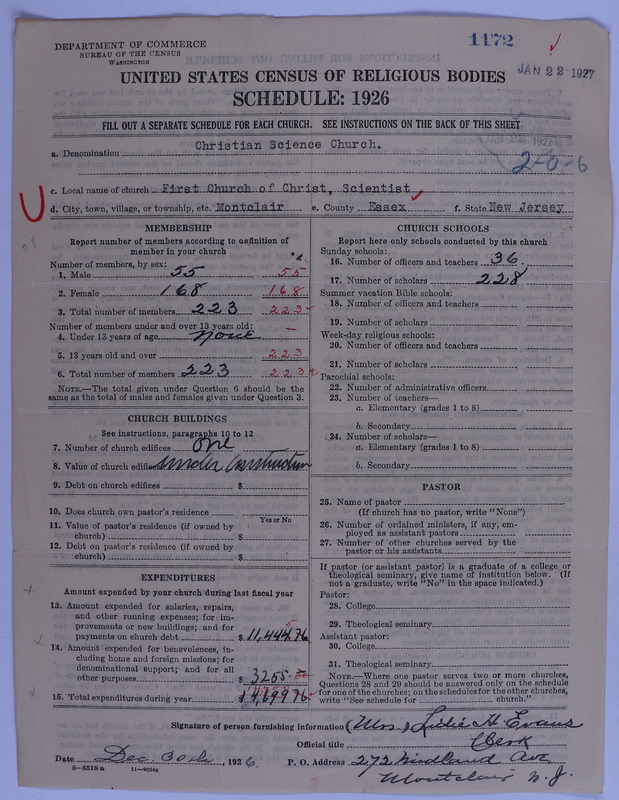 1172
DEPARTMENT OF COMMERCE
BUREAU OF THE CENSUS
WASHINGTON
JAN 22 1927
UNITED STATES CENSUS OF RELIGIOUS BODIES
SCHEDULE: 1926
FILL OUT A SEPARATE SCHEDULE FOR EACH CHURCH. SEE INSTRUCTIONS ON THE BACK OF THIS SHEET
a. Denomination Christian Science Church.
2-0-6
c. Local name of church First Church of Christ, Scientist
d. City, town, village, or township, etc. Montclair e. County Essex f. State New Jersey
MEMBERSHIP
Report number of members according to definition of
member in your church
Number of members, by sex:
1. Male 55 55
2. Female 168 168
3. Total number of members 223 223
Number of members under and over 13 years old:
4. Under 13 years of age None —
5. 13 years old and over 223
6. Total number of members 223 223
NOTE.—The total given under Question 6 should be the
same as the total of males and females given under Question 3.
CHURCH BUILDINGS
See instructions, paragraphs 10 to 12
7. Number of church edifices one
8. Value of church edifices under construction
9. Debt on church edifices $
10. Does church own pastor's residence
Yes or No
11. Value of pastor's residence (if owned by
church) $
12. Debt on pastor's residence (if owned by
church) $
EXPENDITURES
Amount expended by your church during last fiscal year
13. Amount expended for salaries, repairs,
and other running expenses; for im-
provements or new buildings; and for
payments on church debt $ 11,444.76
14. Amount expended for benevolences, in-
cluding home and foreign missions; for
denominational support; and for all
other purposes $ 3255.
15. Total expenditures during year $
CHURCH SCHOOLS
Report here only schools conducted by this church
Sunday schools:
16. Number of officers and teachers 36
17. Number of scholars 228
Summer vacation Bible schools:
18. Number of officers and teachers
19. Number of scholars
Week-day religious schools:
20. Number of officers and teachers
21. Number of scholars
Parochial schools:
22. Number of administrative officers
23. Number of teachers—
a. Elementary (grades 1 to 8)
b. Secondary
24. Number of scholars—
a. Elementary (grades 1 to 8)
b. Secondary
PASTOR
25. Name of pastor
(If church has no pastor, write "None")
26. Number of ordained ministers, if any, em-
ployed as assistant pastors
27. Number of other churches served by the
pastor or his assistants
If pastor (or assistant pastor) is a graduate of a college or
theological seminary, give name of institution below. (If
not a graduate, write "No" in the space indicated.)
Pastor:
28. College
29. Theological seminary
Assistant pastor:
30. College
31. Theological seminary
NOTE.—Where one pastor serves two or more churches,
Questions 28 and 29 should be answered only on the schedule
for one of the churches; on the schedules for the other churches,
write "See schedule for church."
Signature of person furnishing information (Mrs.) Lillie H. Evans
Official title Clerk
Date Dec. 30th, 1926. P. O. Address 272 Midland Ave
8—5518a 11—9034a Montclair N. J.